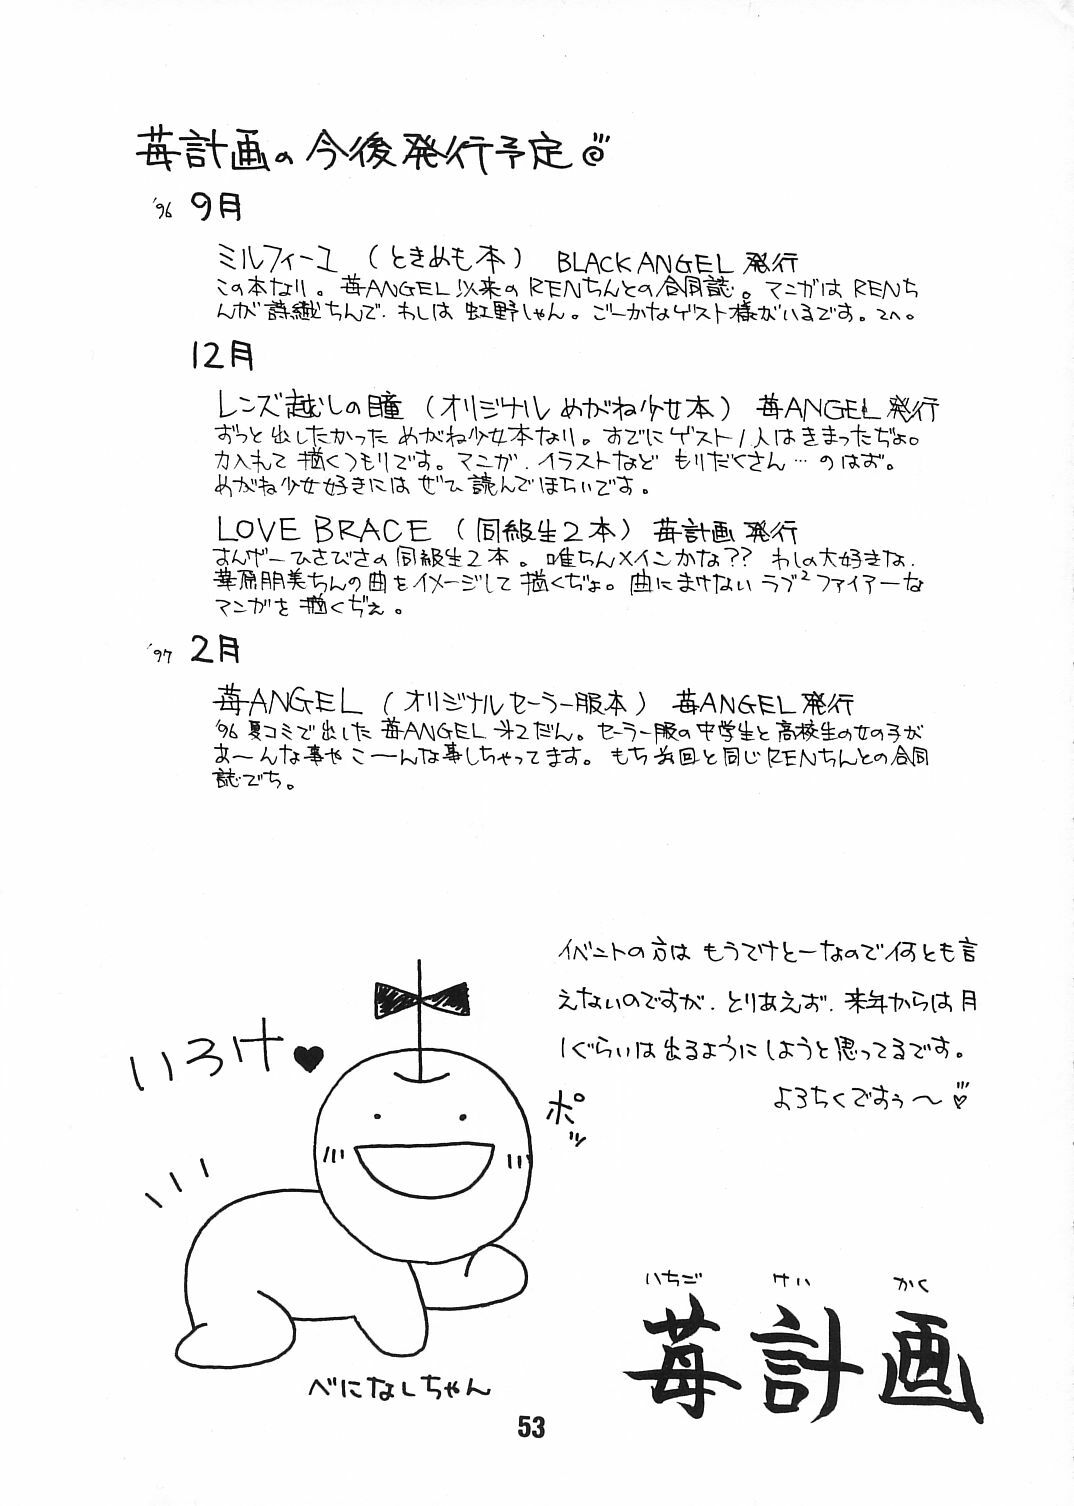 苺計画の今後発行予定
'96 9月
ミルフィーユ （ときめも本） BLACK ANGEL 発行
この本なり。苺ANGEL以来のRENちんとの合同誌。マンガはRENち
んが詩織ちんで、わしは虹野しゃん。ごーかなゲスト様がいるです。てへ。
12月
レンズ越しの瞳 （オリジナルめがね少女本） 苺ANGEL 発行
ずっと出したかっためがね少女本なり。すでにゲスト1人はきまったぢょ。
力入れて描くつもりです。マンガ、イラストなどもりだくさん…のはず。
めがね少女好きにはぜひ読んでほちいです。
LOVE BRACE （同級生2本） 苺計画 発行
すんげーひさびさの同級生2本。唯ちんメインかな?? わしの大好きな、
華原朋美ちんの曲をイメージして描くぢょ。曲にまけないラブ2ファイアーな
マンガを描くぢぇ。
'97 2月
苺ANGEL （オリジナルセーラー服本） 苺ANGEL 発行
'96夏コミで出した苺ANGEL 才2だん。セーラー服の中学生と高校生の女の子が
あ〜んな事やこ〜んな事しちゃってます。もち前回と同じRENちんとの合同
誌でち。
イベントの方はもうてけとーなので何とも言
えないのですが、とりあえず、来年からは月
1ぐらいは出るようにしようと思ってるです。
よろちくですぅ〜♡
いろけ♥
ポッ
べになしちゃん
いちご けい かく
苺計画
53